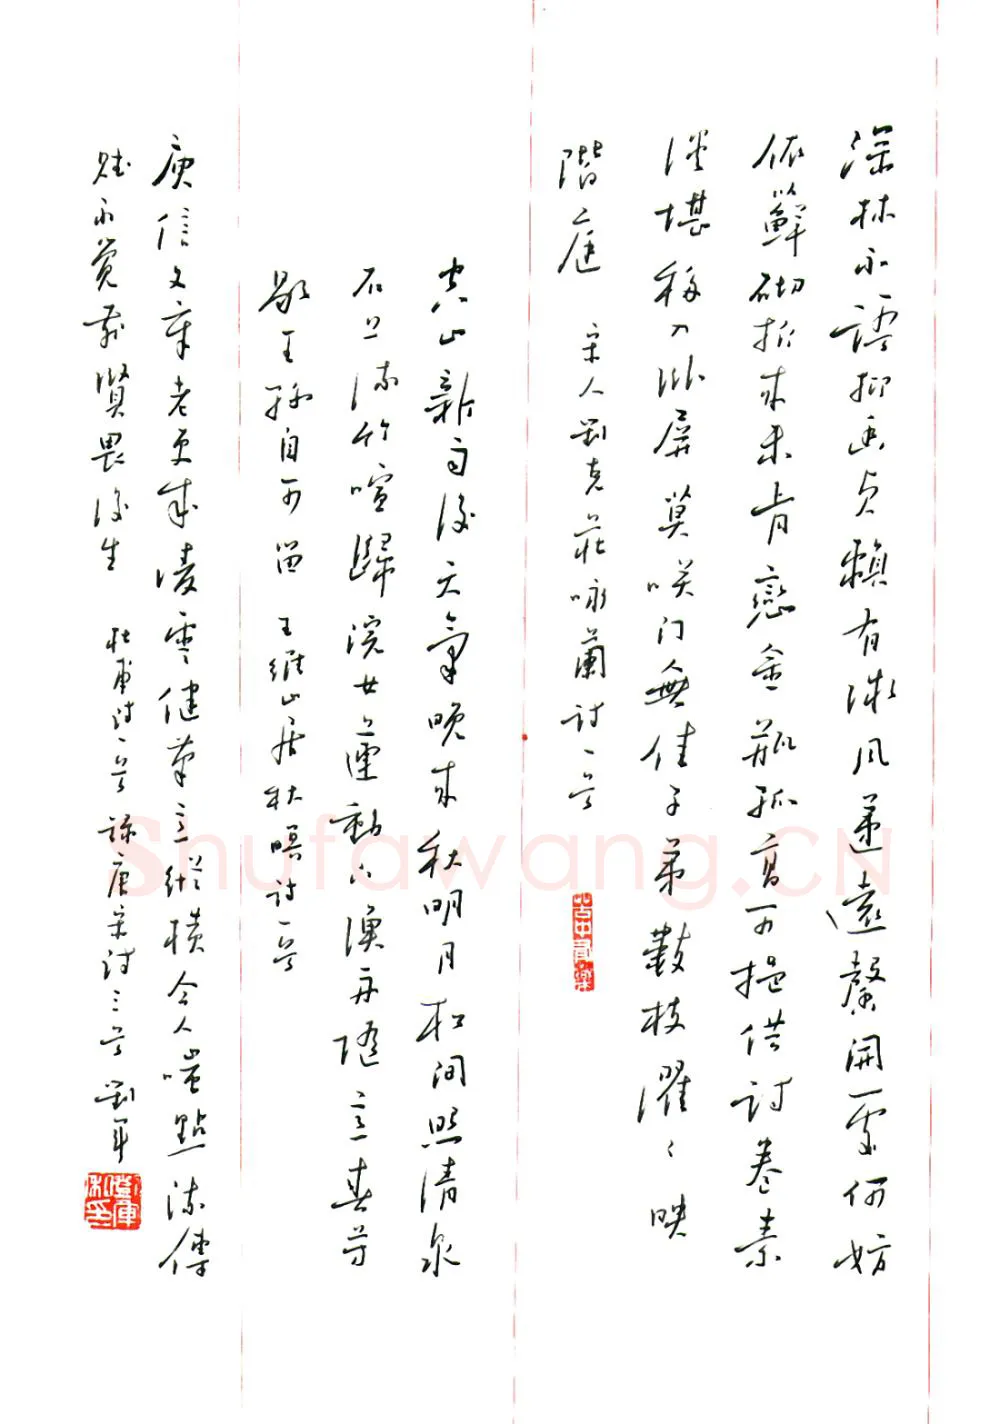 深林不語抱幽貞賴有微風遞遠馨開處何妨
依蘚砌折來未肯戀金瓶孤高可挹供詩卷素
淡堪移入臥屏莫咲門無佳子弟數枝濯々映
階庭 宋人劉克莊詠蘭詩一首
空山新雨後天氣晚來秋明月松間照清泉
石上流竹喧歸浣女蓮動下漁舟隨意春芳
歇王孫自可留 王維山居秋暝詩一首
庾信文章老更成凌雲健筆意縱橫今人嗤點流傳
賦不覺前賢畏後生 杜甫詩一首 錄唐宋詩三首 劉軍
Shufawang.CN